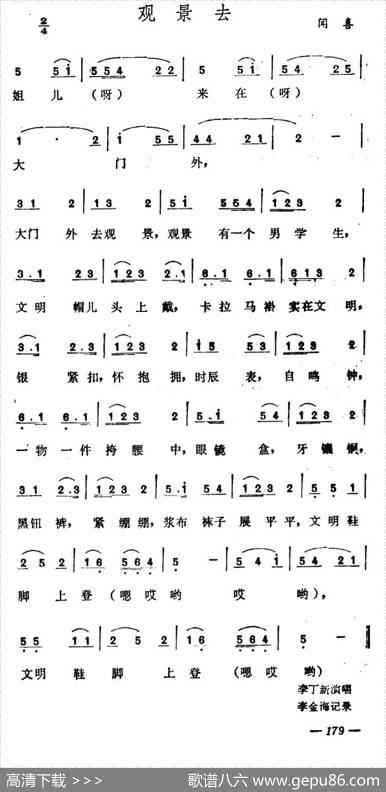 观景去
2/4 闻喜
5 5i | 554 22 | 5 5i | 554 22 |
姐儿(呀) 来在(呀)
1 · 2 | i 55 | 44 21 | 2 — |
大门外,
31 2 | 13 2 | 5i 554 | 123 2 |
大门外去观景,观景有一个男学生,
3.1 23 | 123 2.1 | 6.1 6.1 | 613 2 |
文明帽儿头上戴,卡拉马褂实在文明,
3.1 2.3 | 123 2 | i5 53 | 123 2 |
银紧扣,怀抱拥,时辰表,自鸣钟,
6.1 6.1 | 123 2 | 5.i 54 | 123 2 |
一物一件挎腰中,眼镜盒,牙镶铜,
31 2.3 | 123 2 | 5.i 54 | 123 2 | 55 1 |
黑钮裤,紧绷绷,浆布袜子展平平,文明鞋
252 | 16 564 | 5 — | 54i | 54 21 |
脚上登(嗯哎哟哎哟),
55 11 | 252 | 16 564 | 5 — |
文明鞋脚上登(嗯哎哟)
李丁新演唱
李金海记录
— 179 —
高清下载 >>> 歌谱八六 www.gepu86.com